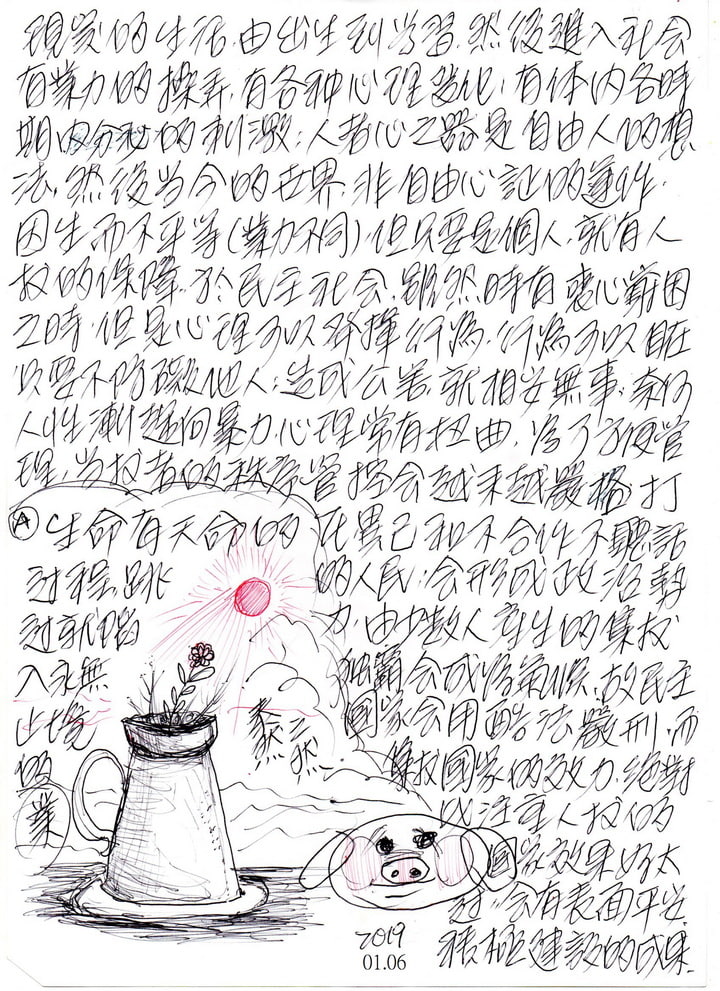 現家的生活.由出生到學習.然後進入社會
有業力的操弄.有各种心理變化.有体内各時
期内分秘的刺激;人者心之器是自由人的想
法.然後当今的世界.非自由心証的運作.
因生而不平等(業力不同).但只要是個人.就有人
权的保障.於民主社会.雖然時有衷心難困
之時.但是心理可以發揮行為.行為可以自在
只要不防礙他人;造成公害.就相安無事;奈何
人性漸趨向暴力.心理常有扭曲.為了方便管
理.当权者的秩序管控会越來越嚴格.打
在異己和不合作不聽話
的人民;会形成政治勢
力.由少数人產生的集权
独霸会成為氣候.故民主
國家会用酷法嚴刑.而
集权國家的效力.絕對
比注重人权的
國家效果好太
过.会有表面平安.
積極建設的成果.
Ⓐ生命有天命的
过程.跳
过就陷
入永無
止境
的
業
泰然
2019
01.06